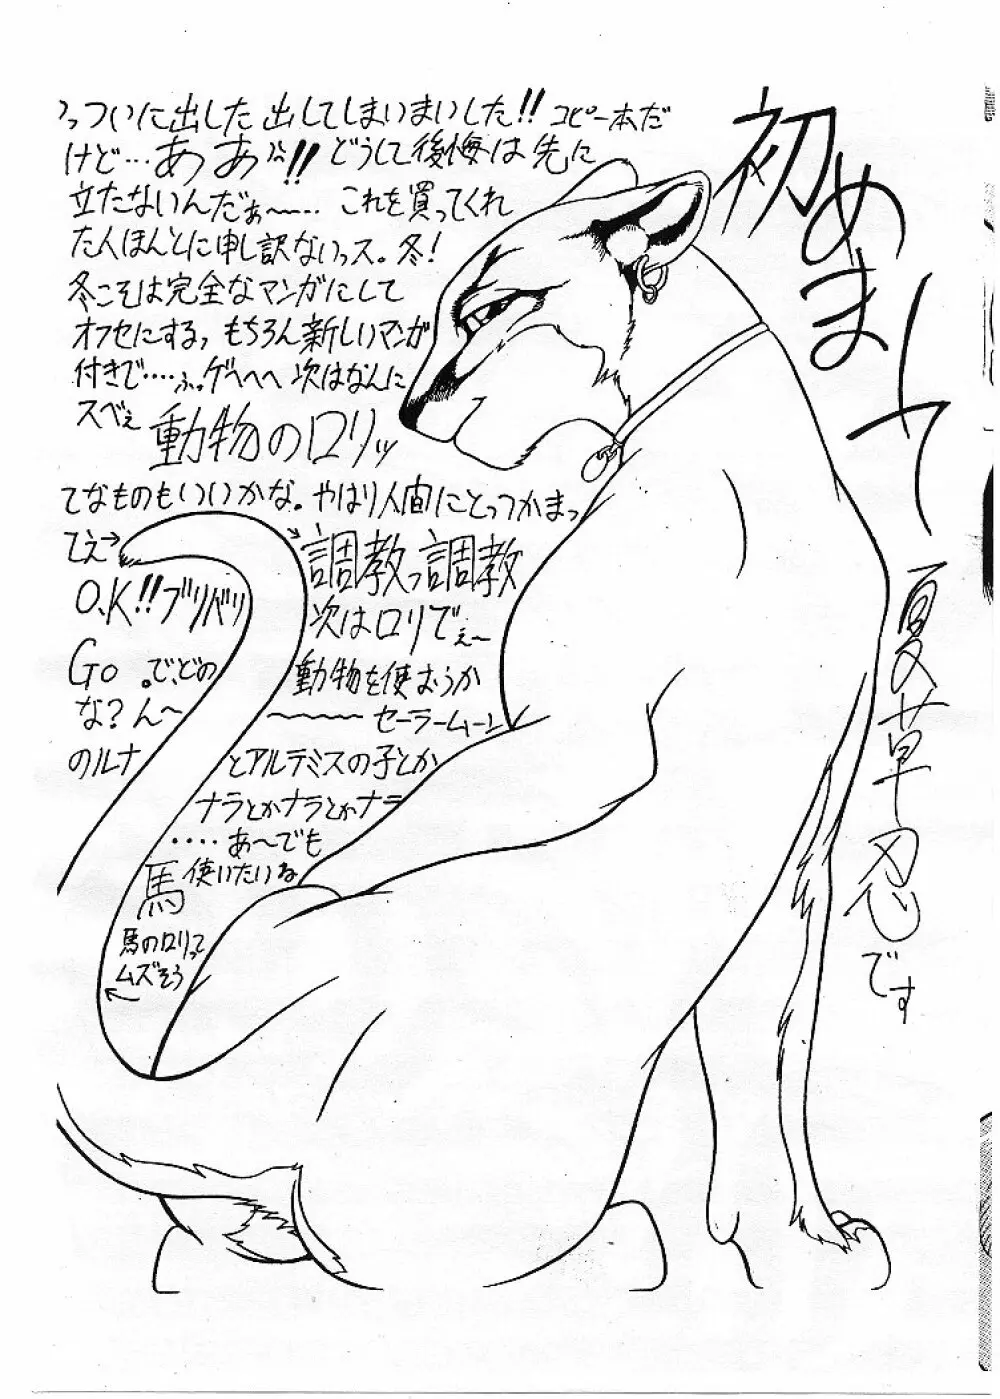 初めまして
夏草忍です
っついに出した出してしまいまいした!! コピー本だ
けど…ああ〜!! どうして後悔は先に
立たないんだぁ〜…. これを買ってくれ
た人ほんとに申し訳ないっス。冬!
冬こそは完全なマンガにして
オフセにする、もちろん新しいマンガ
付きで….ふっゲヘヘヘ 次はなんに
スベぇ 動物のロリッ
てなものもいいかな。やはり人間にとっつかまっ
てぇ→ →調教っ調教
O.K!! ブリバリ 次はロリでぇ〜
Go。で、どの 動物を使おうか
な?ん〜 〜〜〜 セーラームーン
のルナ とアルテミスの子とか
ナラとかナラとかナラ
....あ〜でも
馬 使いたいな
馬のロリって
ムズそう
←